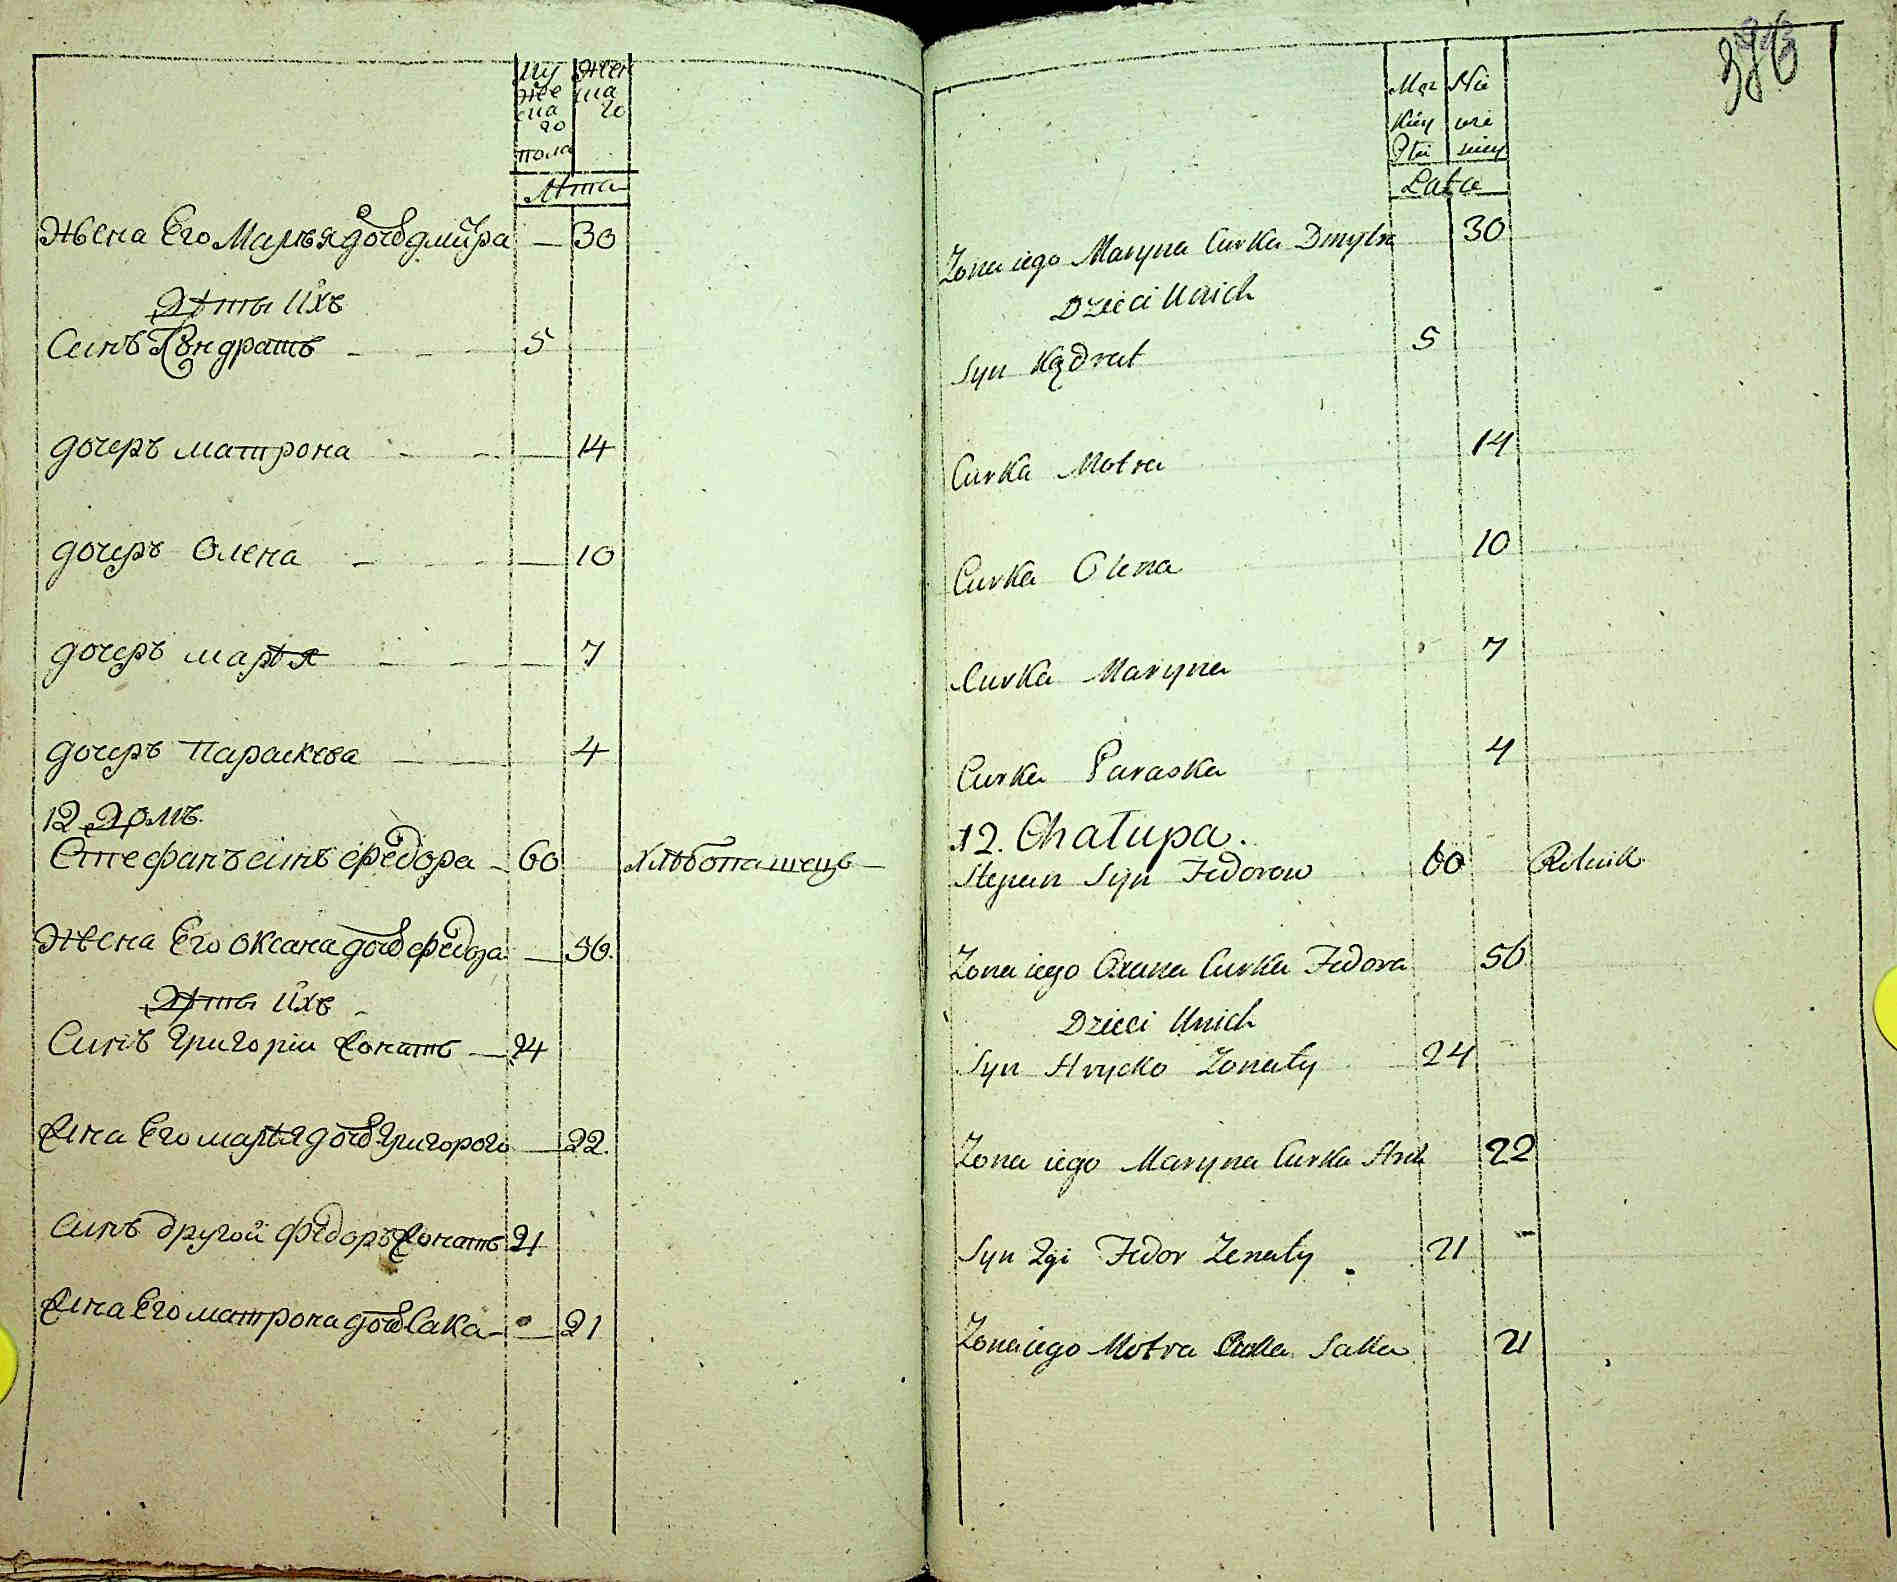 му жен
же ша
ска го
го
пола
Лѣта
Жена Его Марья дочь дмитра — 30
Дѣты Ихъ
Синъ Кондратъ — 5
дочеръ матрона — 14
дочеръ Олена — 10
дочеръ марья — 7
дочеръ Параскева — 4
12 Домъ
Стефанъ синъ федора — 60 Хлѣбопашецъ
Жена Его Оксана дочь федора — 56
Дѣты Ихъ
Синъ Григорій Жонатъ — 24
Жена Его марья дочь Григорого — 22
Синъ другой Федоръ Жонатъ 21
Жена Его матрона дочь Сака — 21
Męz Nie
kiey wie
Płci sciey
Lata
Zona iego Maryna Curka Dmytra 30
Dzieci Unich
Syn Kądrat 5
Curka Motra 14
Curka Olena 10
Curka Maryna 7
Curka Paraska 4
12. Chałupa.
Stepan Syn Fedorow 60 Rolnik
Zona iego Oxana Curka Fedora 56
Dzieci Unich
Syn Hrycko Zonaty 24
Zona iego Maryna Curka 22
Syn 2gi Fedor Zonaty 21
Zona iego Motra Curka Saka 21